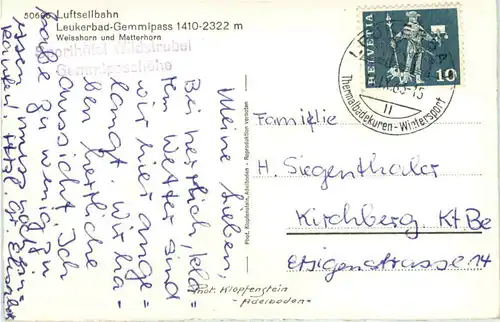 50696 Luftseilbahn
Leukerbad-Gemmipass 1410-2322 m
Weisshorn und Matterhorn
Sporthotel Wildstrubel
Gemmipasshöhe
HELVETIA
10
Thermalbadekuren-Wintersport
Meine Lieben,
Bei herrlich, kla=
rem Wetter sind
wir hier ange=
langt. Wir ha=
ben herrliche
Aussicht. Ich
habe zu wenig zu
essen
Familie
H. Siegenthaler
Kirchberg Kt Be
Ersigenstrasse 14
Phot. Klopfenstein, Adelboden - Reproduktion verboten
Phot. Klopfenstein
- Adelboden -